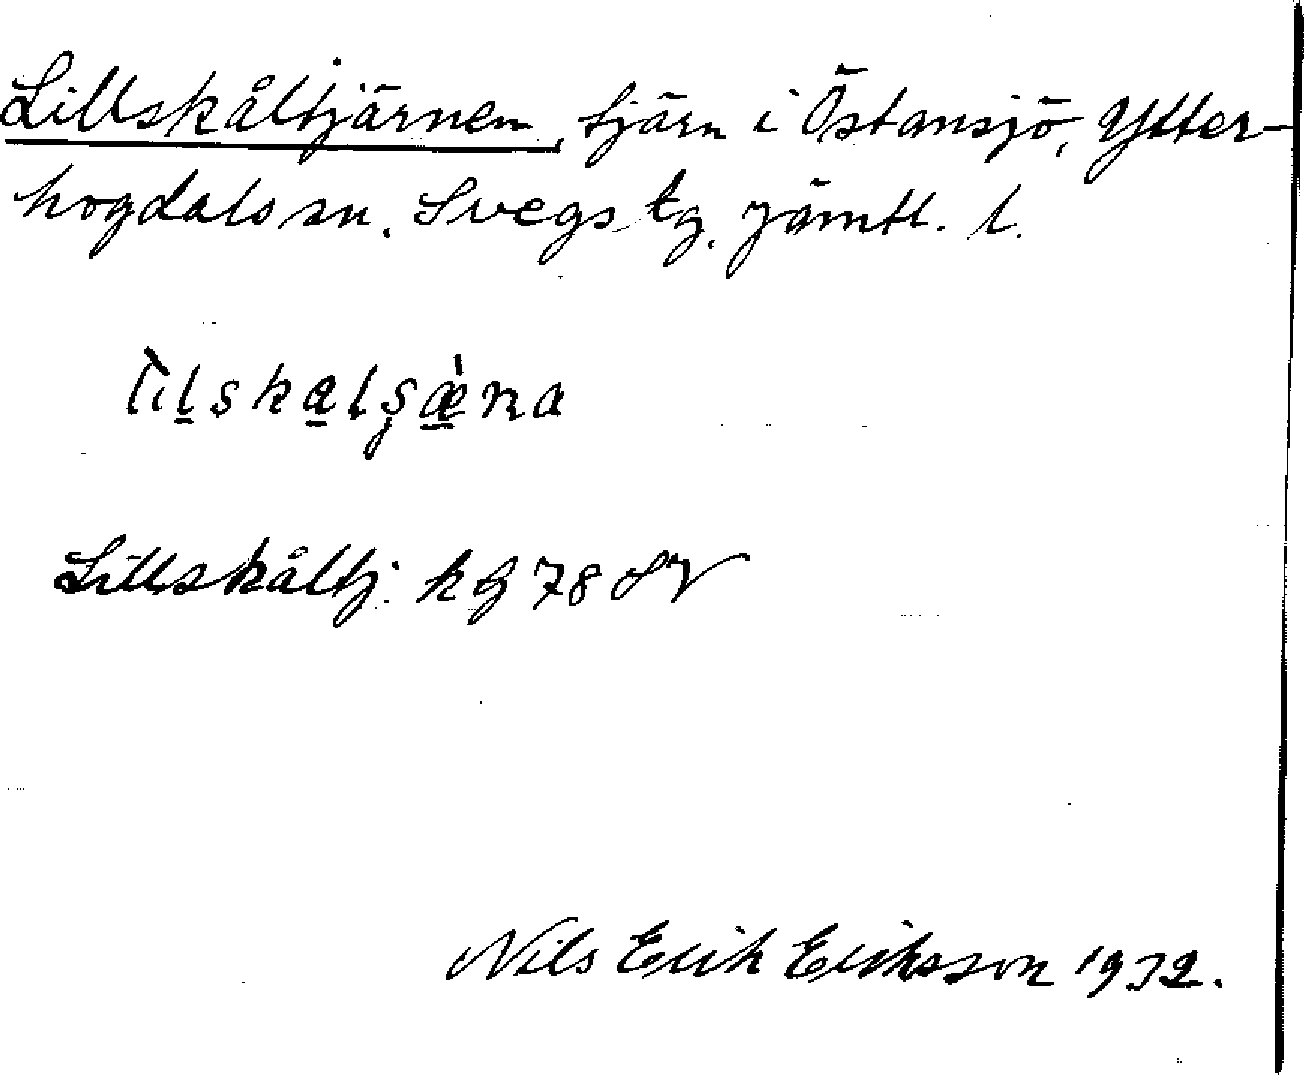 Lillskåltjärnen, tjärn i Östansjö, Ytter-
hogdals sn. Svegs tg. Jämtl. l.
Lillskåltj: kbl 78 SV
Nils Erik Eriksson 1932.